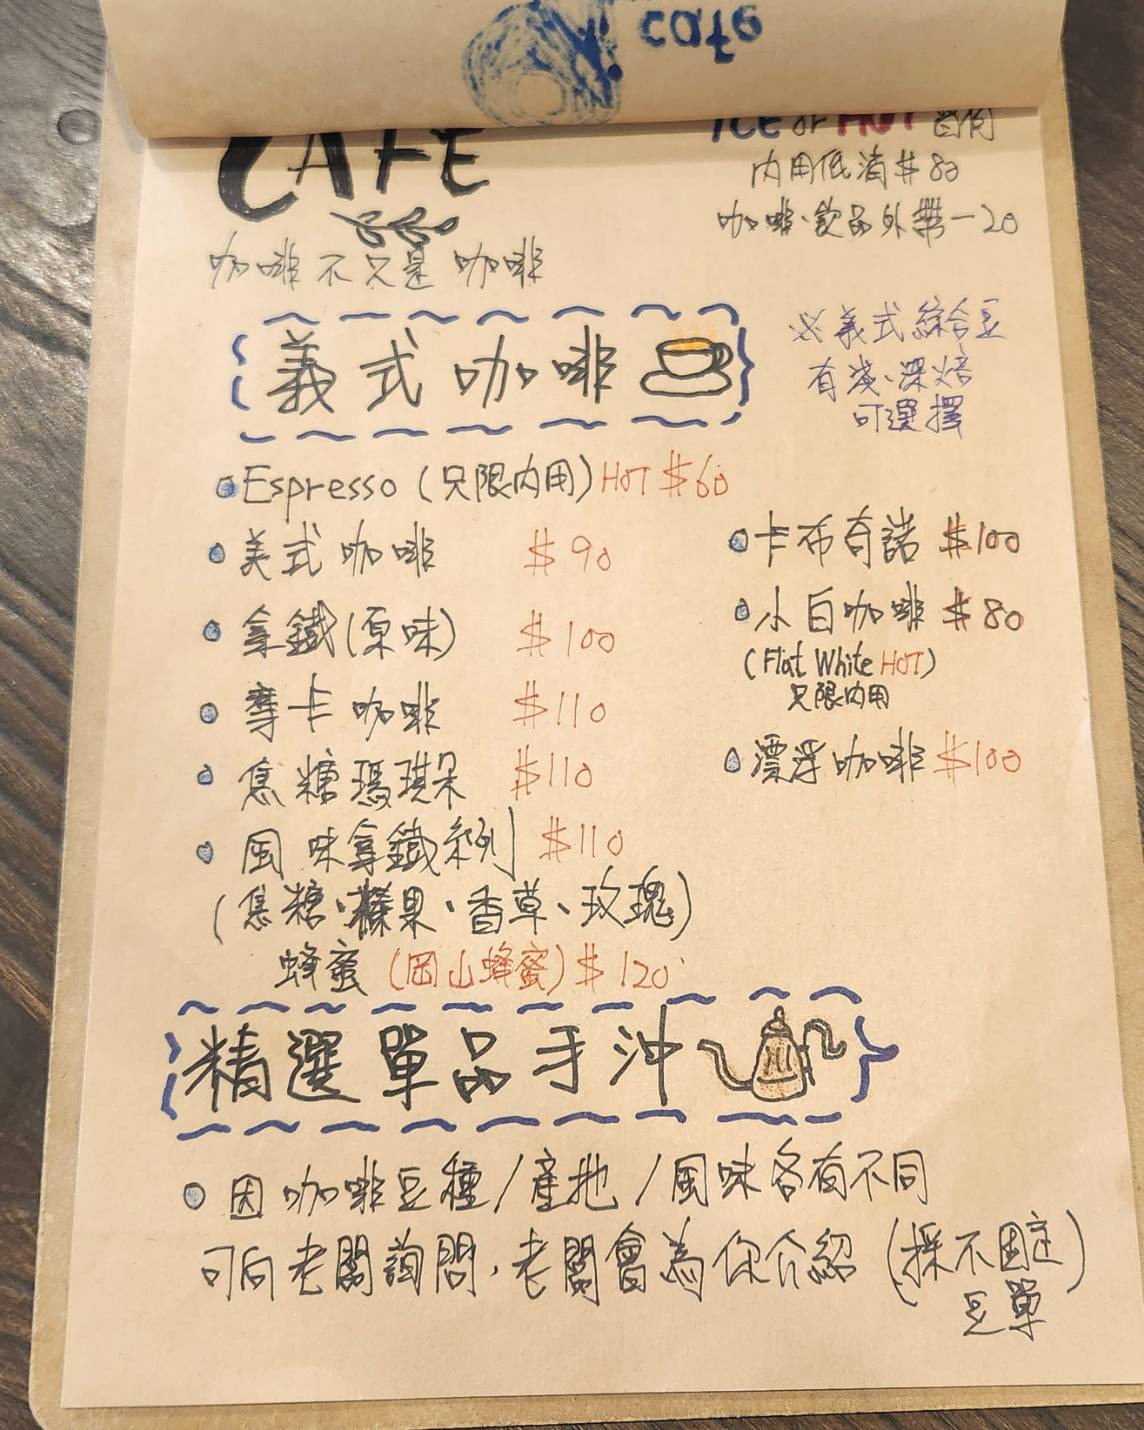 cafe
CAFE
ICE or HOT 皆有
內用低消 $80
咖啡、飲品外帶-20
咖啡不只是咖啡
義式咖啡
※義式綜合豆
有淺、深焙
可選擇
Espresso (只限內用) HOT $60
美式咖啡 $90
拿鐵(原味) $100
摩卡咖啡 $110
焦糖瑪琪朵 $110
風味拿鐵系列 $110
(焦糖、榛果、香草、玫瑰)
蜂蜜(岡山蜂蜜) $120
卡布奇諾 $100
小白咖啡 $80
(Flat White HOT)
只限內用
漂浮咖啡 $100
精選單品手沖
因咖啡豆種/產地/風味各有不同
可向老闆詢問,老闆會為你介紹(採不固定
豆單)